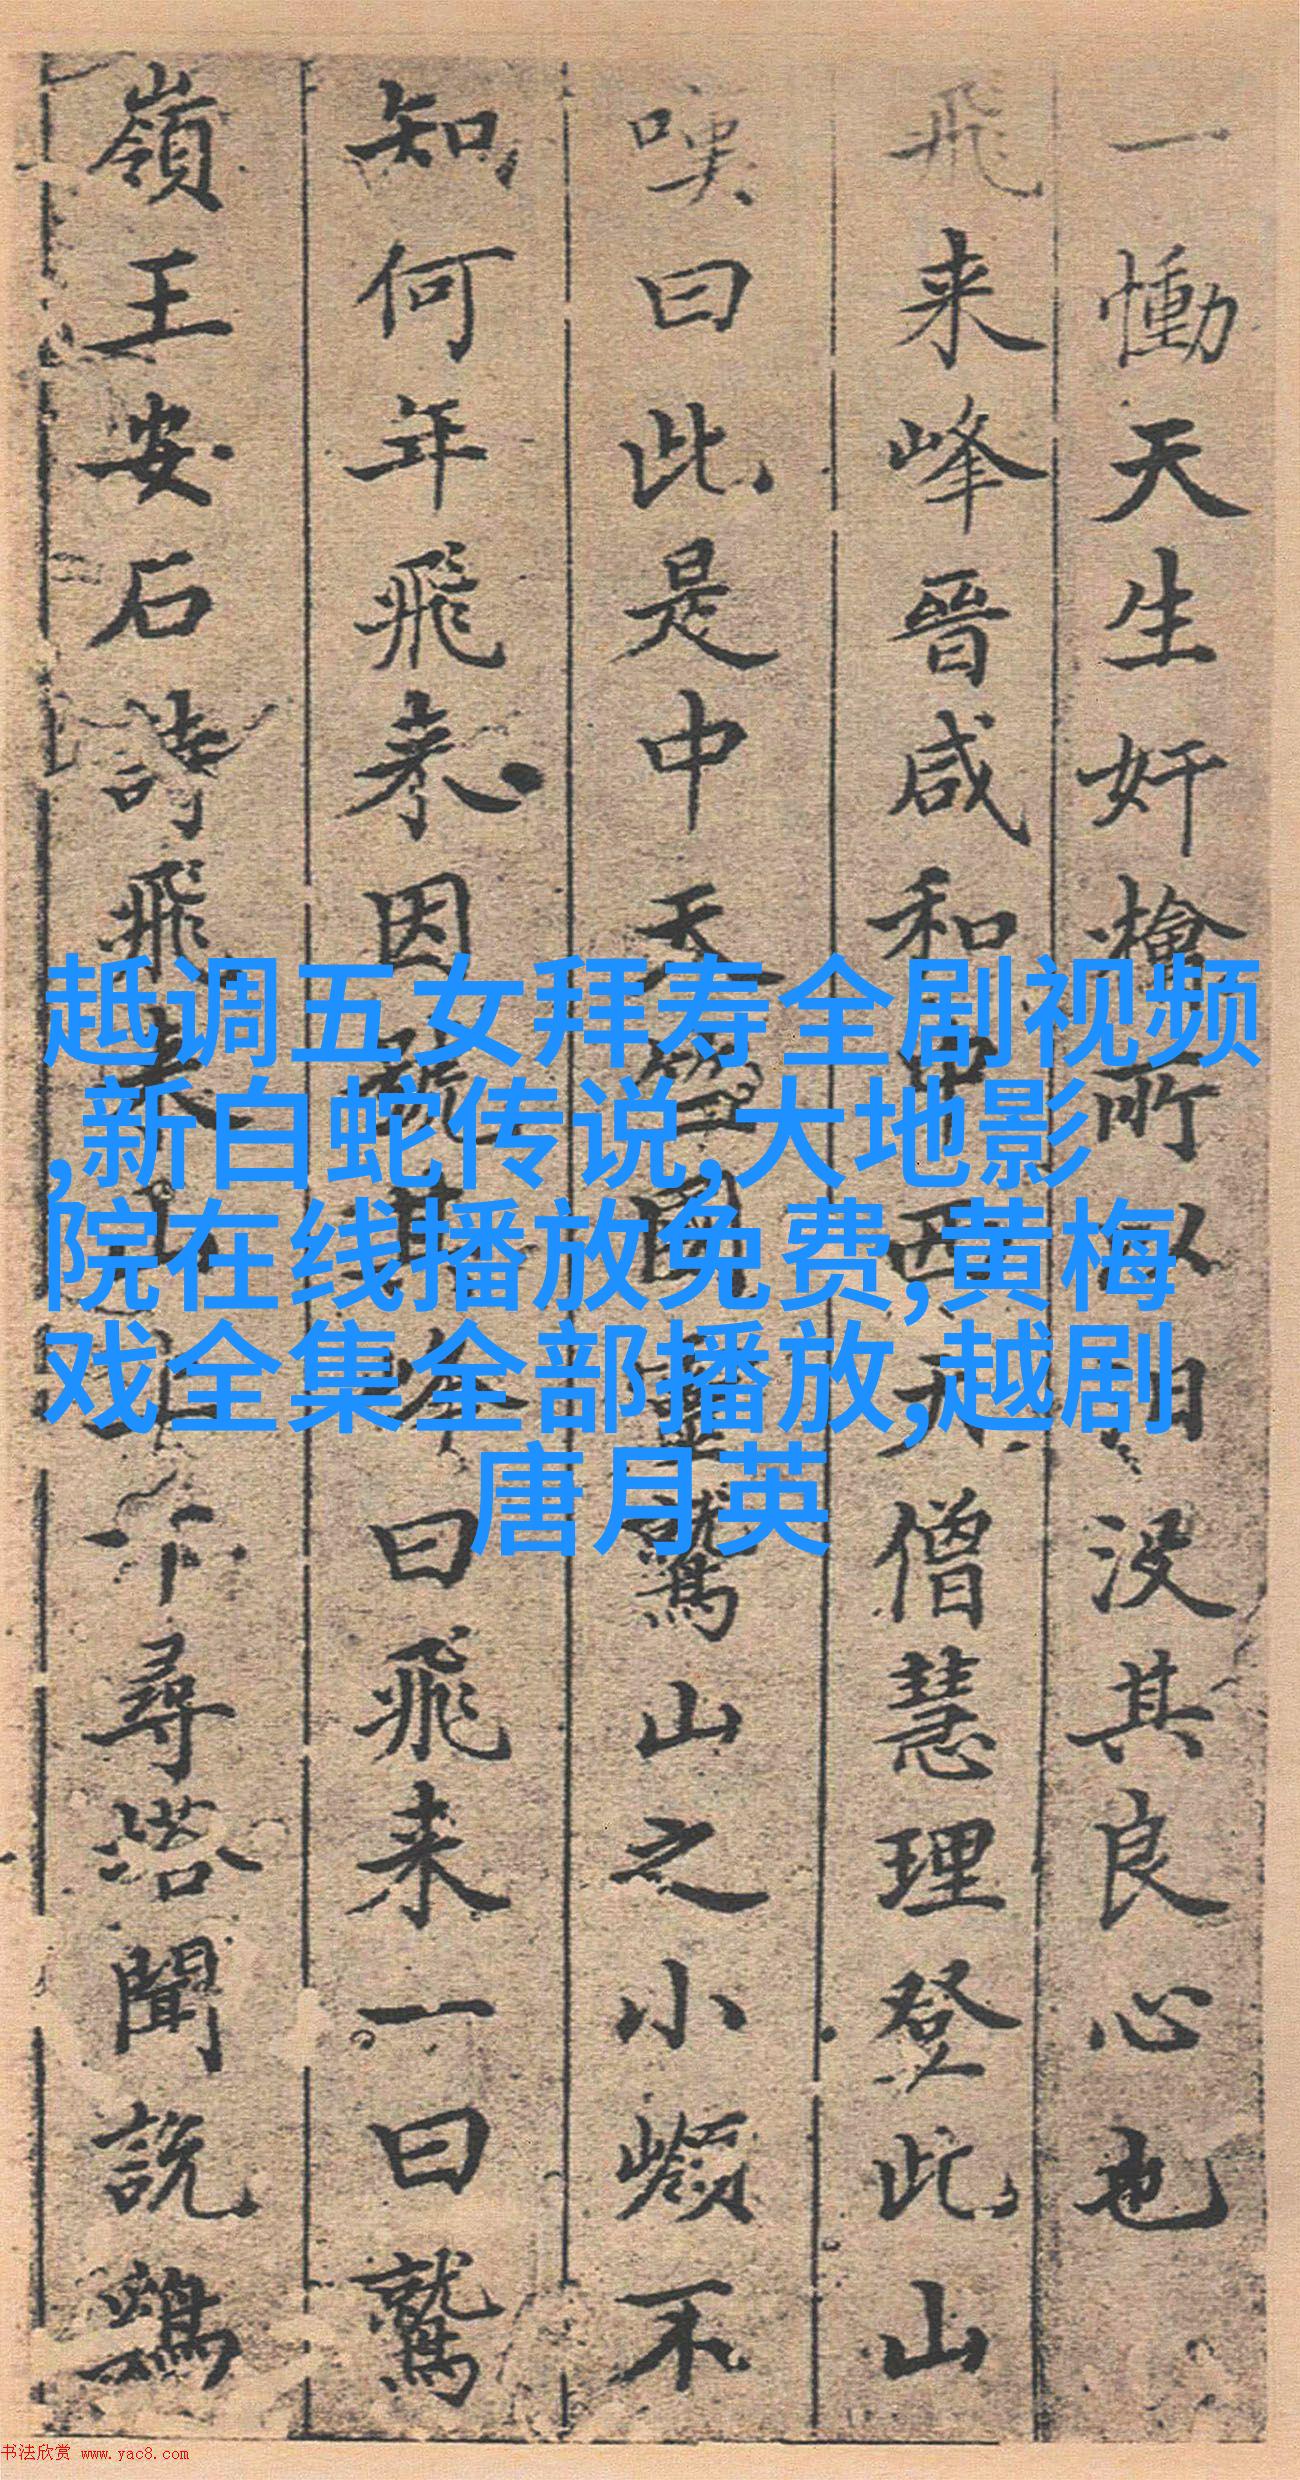 趆调五女拜寿全剧视频
,新白蛇传说,大地影
院在线播放免费,黄梅
戏全集全部播放,越剧
唐月英
一慟天生奸檜所以自没其良心也
飛来峰晉咸和中西天僧慧理登此山
嘆曰此是中天竺國靈鷲山之小嶺不
知何年飛来因號其峰曰飛来一曰鷲
嶺王安石詩飛来山上千尋塔聞説鷄
书法欣赏 www.yac8.com